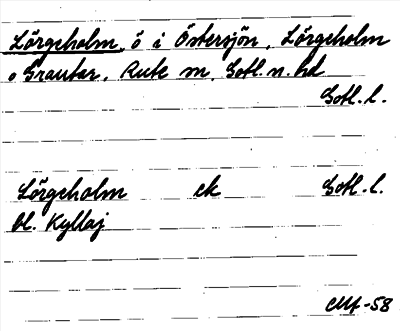 Lörgeholm, ö i Östersjön, Lörgeholm
o Grautar, Rute sn, Gotl. n. hd
Gotl. l.
Lörgeholm ek Gotl. l.
bl. Kyllaj
CMf-58